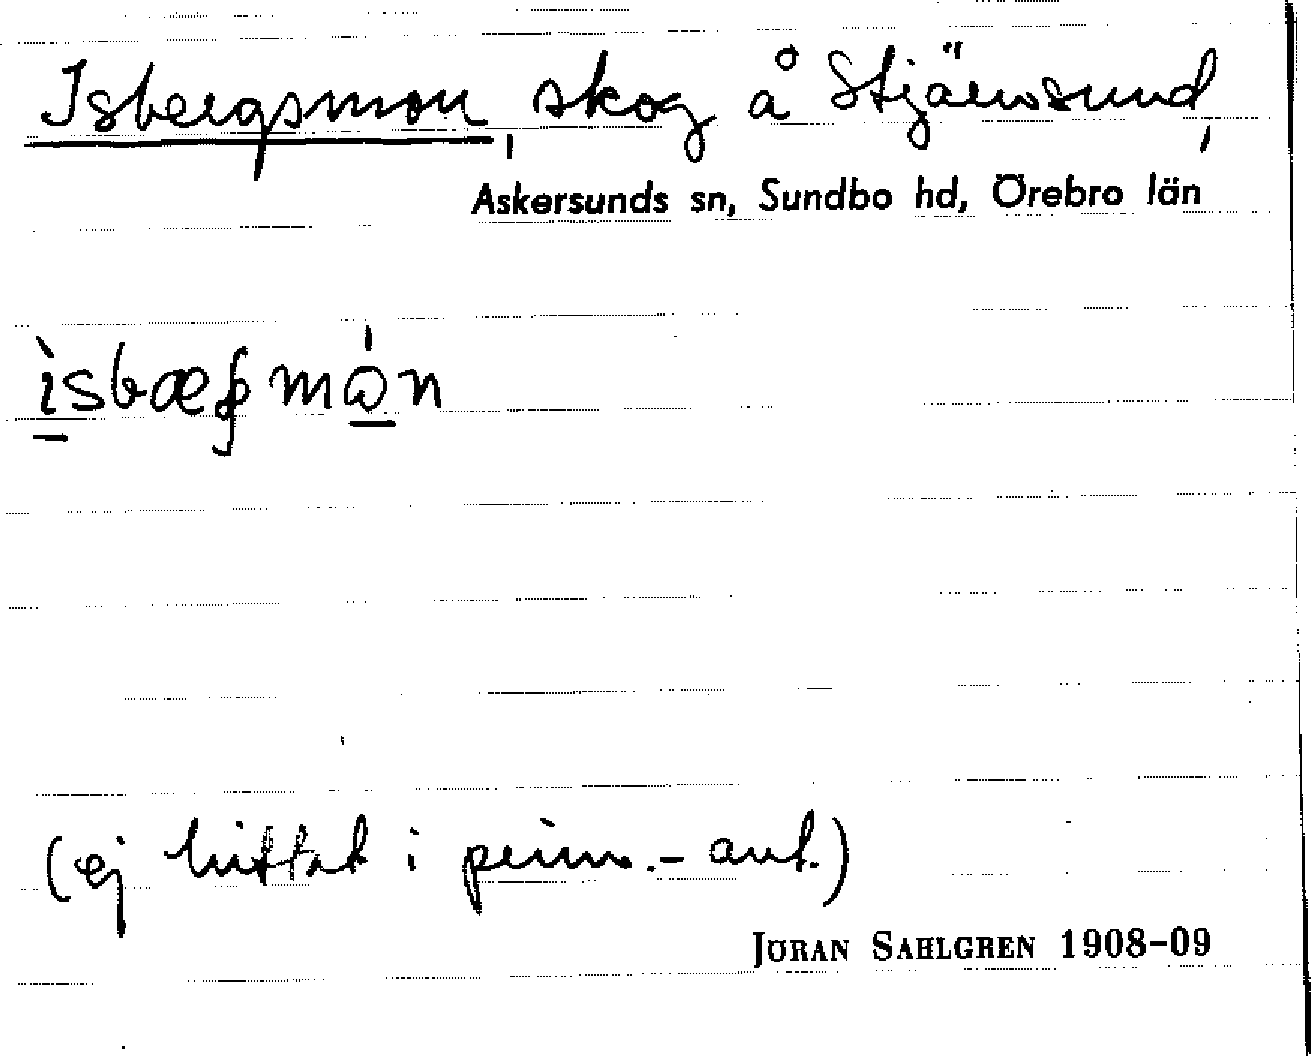 Isbergsmon, skog å Stjärnsund,
Askersunds sn, Sundbo hd, Örebro län
(ej hittat i prim.-ant.)
JÖRAN SAHLGREN 1908-09